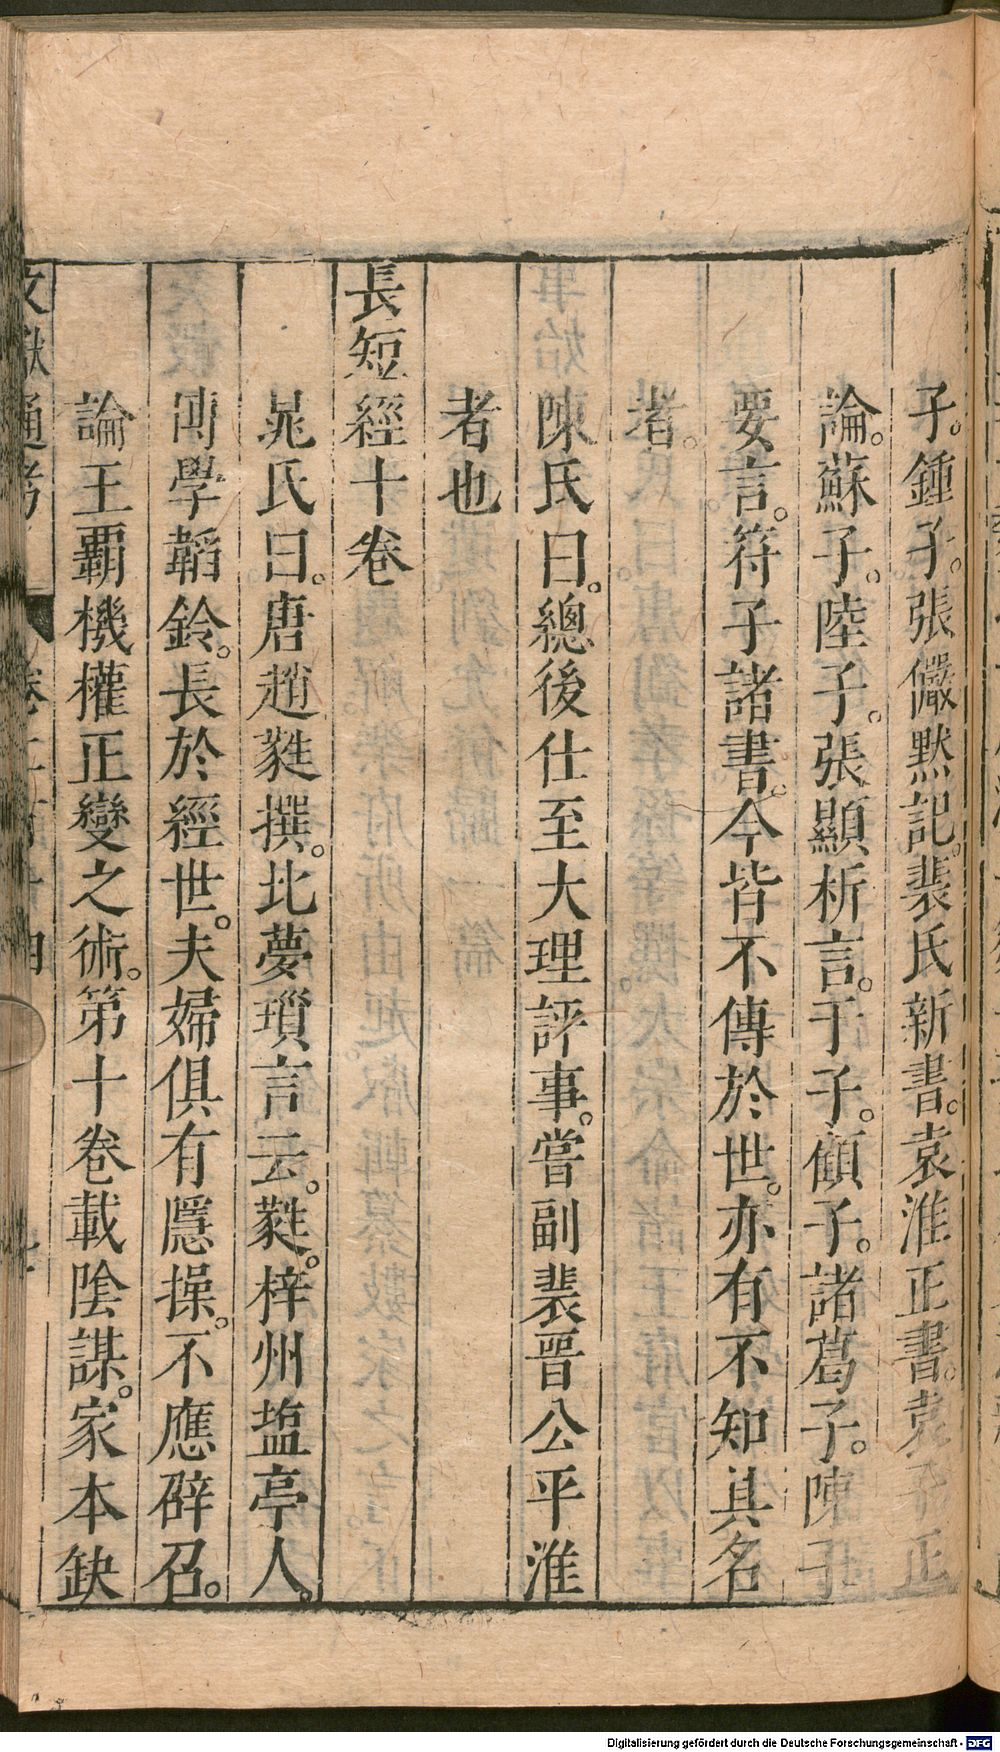 子。鍾子。張儼默記。裴氏新書。袁淮正書。袁子正
論。蘇子。陸子。張顯析言。于子。傾子。諸葛子。陳子
要言。符子諸書。今皆不傳於世。亦有不知其名
者。
陳氏曰。總後仕至大理評事。嘗副裴晉公平淮
者也
長短經十卷
晁氏曰。唐趙蕤撰。比夢瑣言云。蕤。梓州塩亭人。
博學韜鈐。長於經世。夫婦俱有隱操。不應辟召。
論王覇機權正變之術。第十卷載陰謀。家本缺
文獻通考
Digitalisierung gefördert durch die Deutsche Forschungsgemeinschaft - DFG